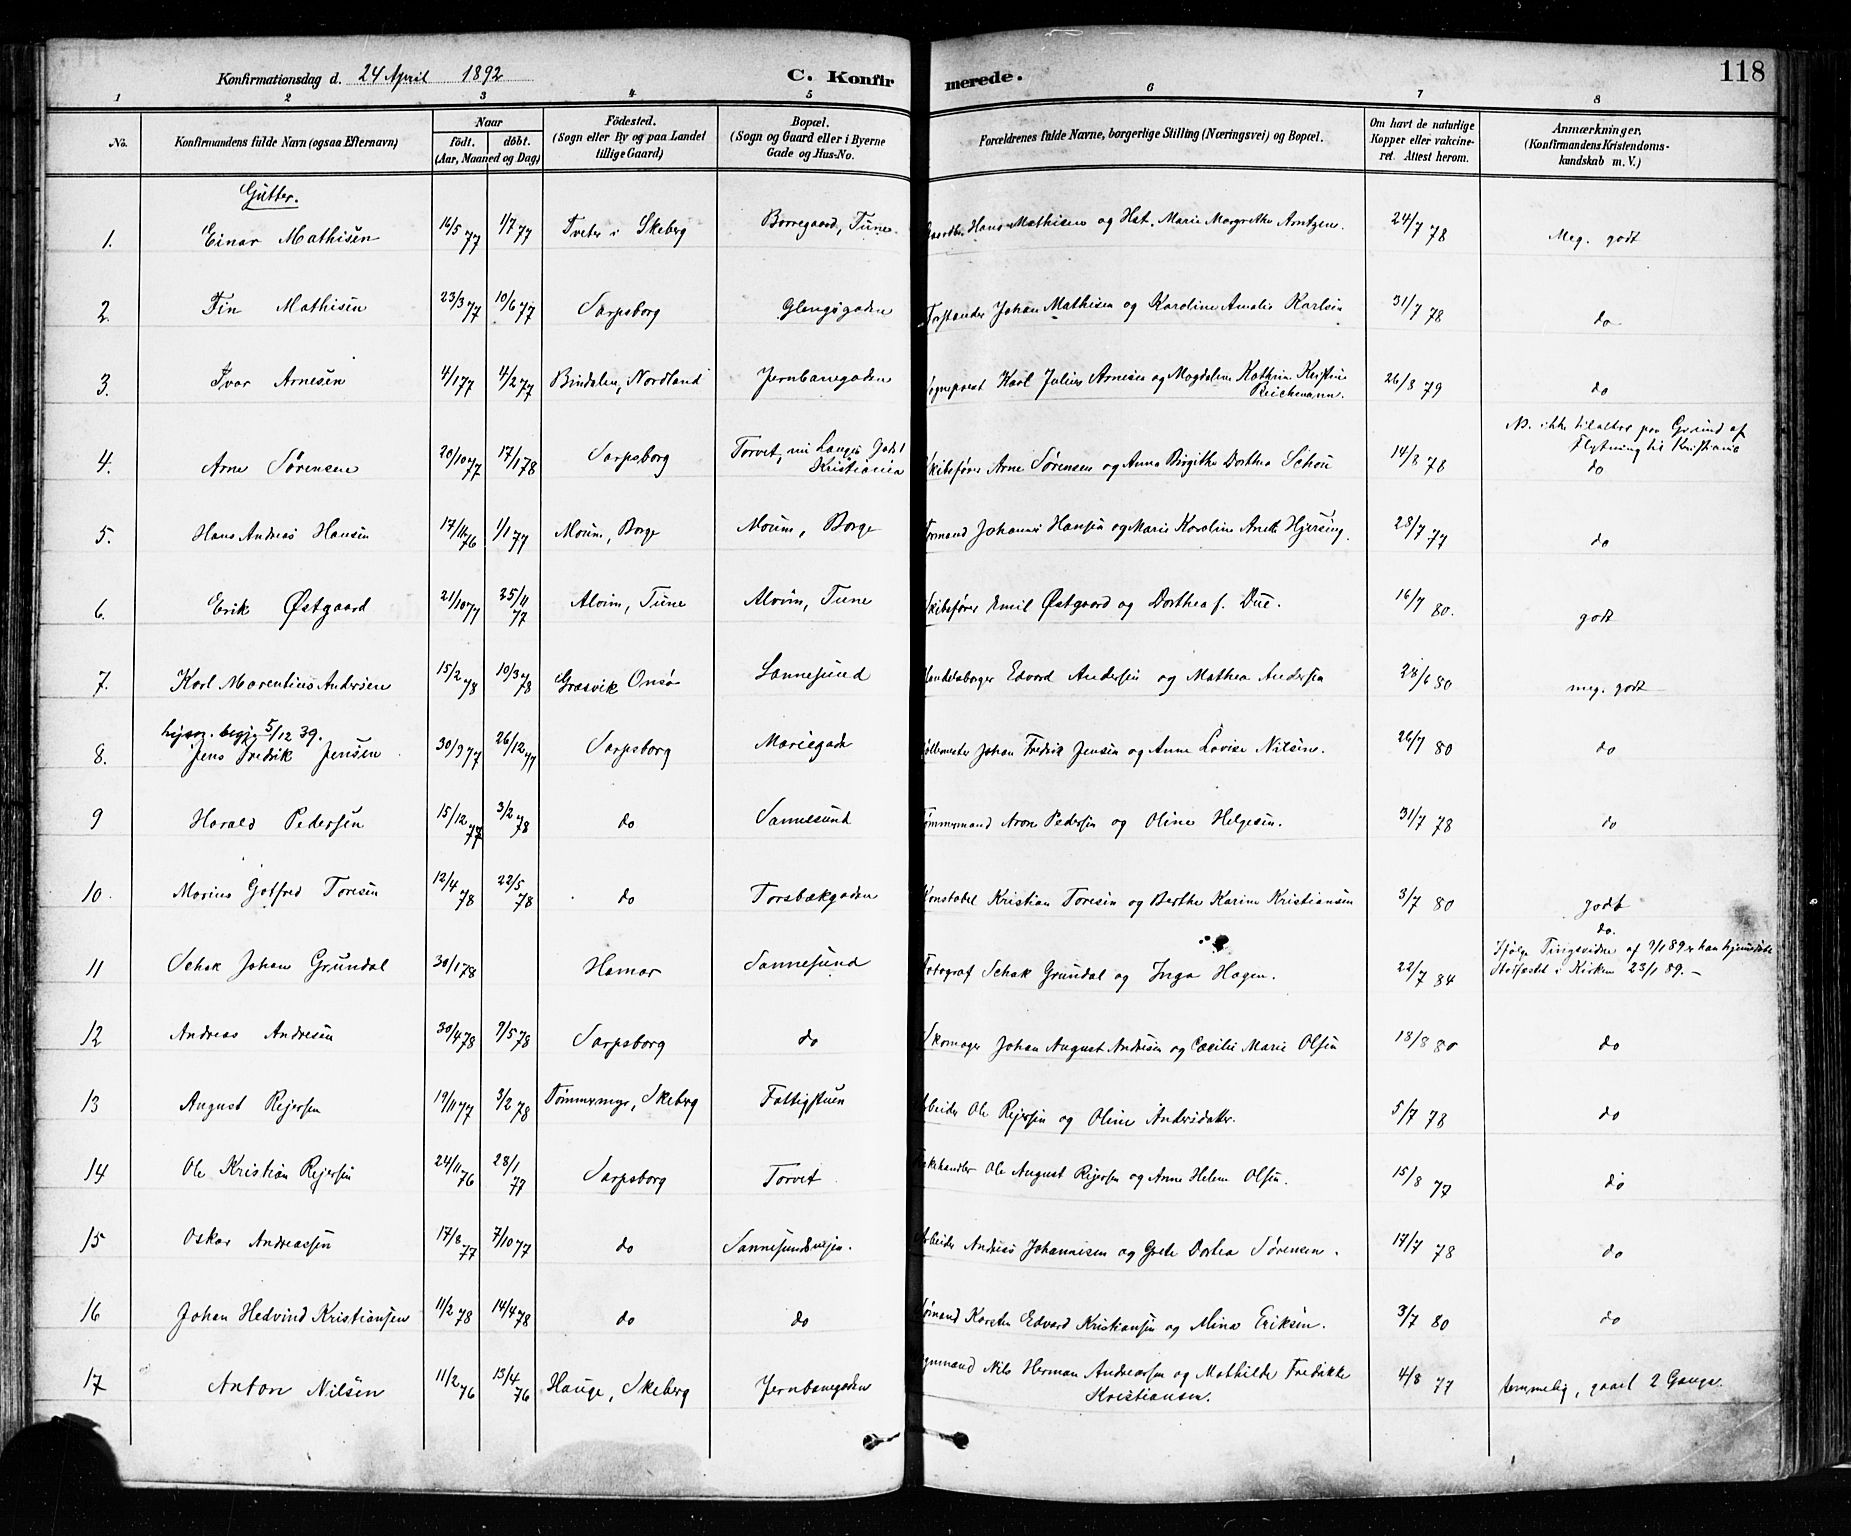 118
Konfirmationsdag d. 24 April 1892
C. Konfirmerede.
1 2 3 4 5 6 7 8
No. Konfirmandens fulde Navn (ogsaa Efternavn) Naar födt. döbt. (Aar, Maaned og Dag) Födested. (Sogn eller By og paa Landet tillige Gaard) Bopæl. (Sogn og Gaard eller i Byerne Gade og Hus-No. Forældrenes fulde Navne, borgerlige Stilling (Næringsvei) og Bopæl. Om havt de naturlige Kopper eller vakcineret. Attest herom. Anmærkninger. (Konfirmandens Kristendomskundskab m. V.)
Gutter.
1. Einar Mathisen 16/5 77 1/7 77 Tveter i Skeberg Borregaard, Tune. Hans Mathisen og Hst. Marie Margrethe Arntzen. 24/7 78 Meg. godt
2. Fin Mathisen 23/3 77 10/6 77 Sarpsborg Glengsgaden Forstander Johan Mathisen og Karoline Amalie Karlsen 31/7 78 do
3. Ivar Arnesen 4/1 77 4/2 77 Bindalen, Nordland Jernbanegaden Sogneprest Karl Julius Arnesen og Magdalene Kathrine Kristine Reichmann. 26/8 79 do
N. ikke tilaltes paa Grund af Flytning til Kristiania
4. Arne Sørensen 20/10 77 17/1 78 Sarpsborg Torvet, nu Langes Gade 1 Kristiania Skibsfører Arne Sørensen og Anna Birgithe Dorthea Schou 14/8 78 do
5. Hans Andreas Hansen 17/11 76 1/1 77 Moum, Borge Moum, Borge Formand Johannes Hansen og Marie Karoline Aneth Hjersing. 28/7 77 do
6. Erik Østgaard 21/10 77 25/11 77 Alvim, Tune Alvim, Tune Skibsfører Emil Østgaard og Dorthea f. Due. 16/7 80. godt
7. Karl Marentius Andersen 15/2 78 10/3 78 Græsvik Onsø Sannesund Handelsborger Edvard Andersen og Mathea Andersen 28/6 80 meg. godt
lysn. begj. 5/12 39.
8. Jens Fredrik Jensen 30/9 77 26/12 77 Sarpsborg Mariegade Møllemester Johan Fredrik Jensen og Anne Lovise Nilsen. 26/7 80 do
9 Harald Pedersen 15/12 77 3/2 78 do Sannesund Tømmermand Aron Pedersen og Oline Helgesen. 31/7 78 do
10. Marius Gotfred Toresen 12/4 78 22/5 78 do Torsbækgaden Konstabel Kristian Toresen og Berthe Karine Kristiansen 3/7 80 godt
11 Schak Johan Grundal 30/1 78 Hamar Sannesund Fotograf Schak Grundal og Inga Hagen. 22/7 84 do. Ifølge Tingsvidne af 9/1 89 er han hjemmedøbt Stadfæstet i Kirken 23/1 89. –
12 Andreas Andresen 30/4 78 9/5 78 Sarpsborg do Skomager Johan August Andresen og Cæcilie Marie Olsen 18/8 80 do
13 August Rejersen 19/11 77 3/2 78 Tømmermyr, Skeberg Fattigstuen Arbeider Ole Rejersen og Oline Andersdatter. 5/7 78 do
14 Ole Kristian Rejersen 24/11 76 28/1 77 Sarpsborg Torvet Fiskehandler Ole August Rejersen og Anne Helene Olsen. 15/8 77 do
15 Oskar Andreassen 17/8 77 7/10 77 do Sannesundsvejen. Arbeider Andreas Johannesen og Grete Dortea Sørensen. 17/7 78 do
16 Johan Hedvind Kristiansen 11/2 78 14/4 78 do do Sømand Karsten Edvard Kristiansen og Mina Eriksen. 3/7 80 do
17 Anton Nilsen 11/2 76 13/4 76 Hauge, Skeberg Jernbanegaden Nils Herman Andreassen og Mathilde Fredrikke Kristiansen. 4/8 77 temmelig, gaaet 2 Gange.